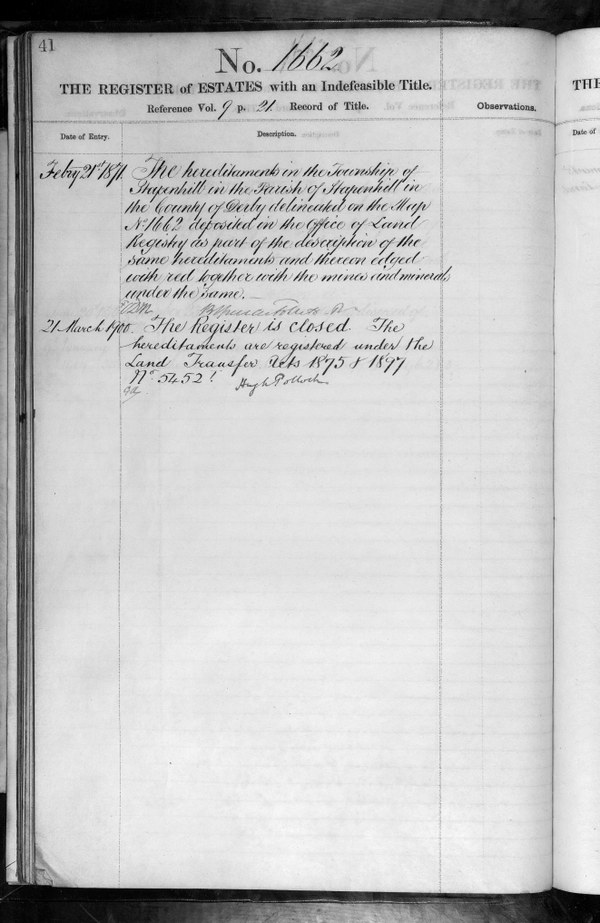 41
No. 1662
THE REGISTER of ESTATES with an Indefeasible Title.
Reference Vol. 9 p. 21. Record of Title.
Observations.
Date of Entry.
Description.
Febry 21st 1871. The hereditaments in the Township of
Stapenhill in the Parish of Stapenhill in
the County of Derby delineated on the Map
No. 1662 deposited in the Office of Land
Registry as part of the description of the
same hereditaments and thereon edged
with red together with the mines and minerals
under the same.
21 March 1900. The Register is closed. The
hereditaments are registered under the
Land Transfer Acts 1875 & 1897
No. 5452.
Hugh Pollock
THE
Date of